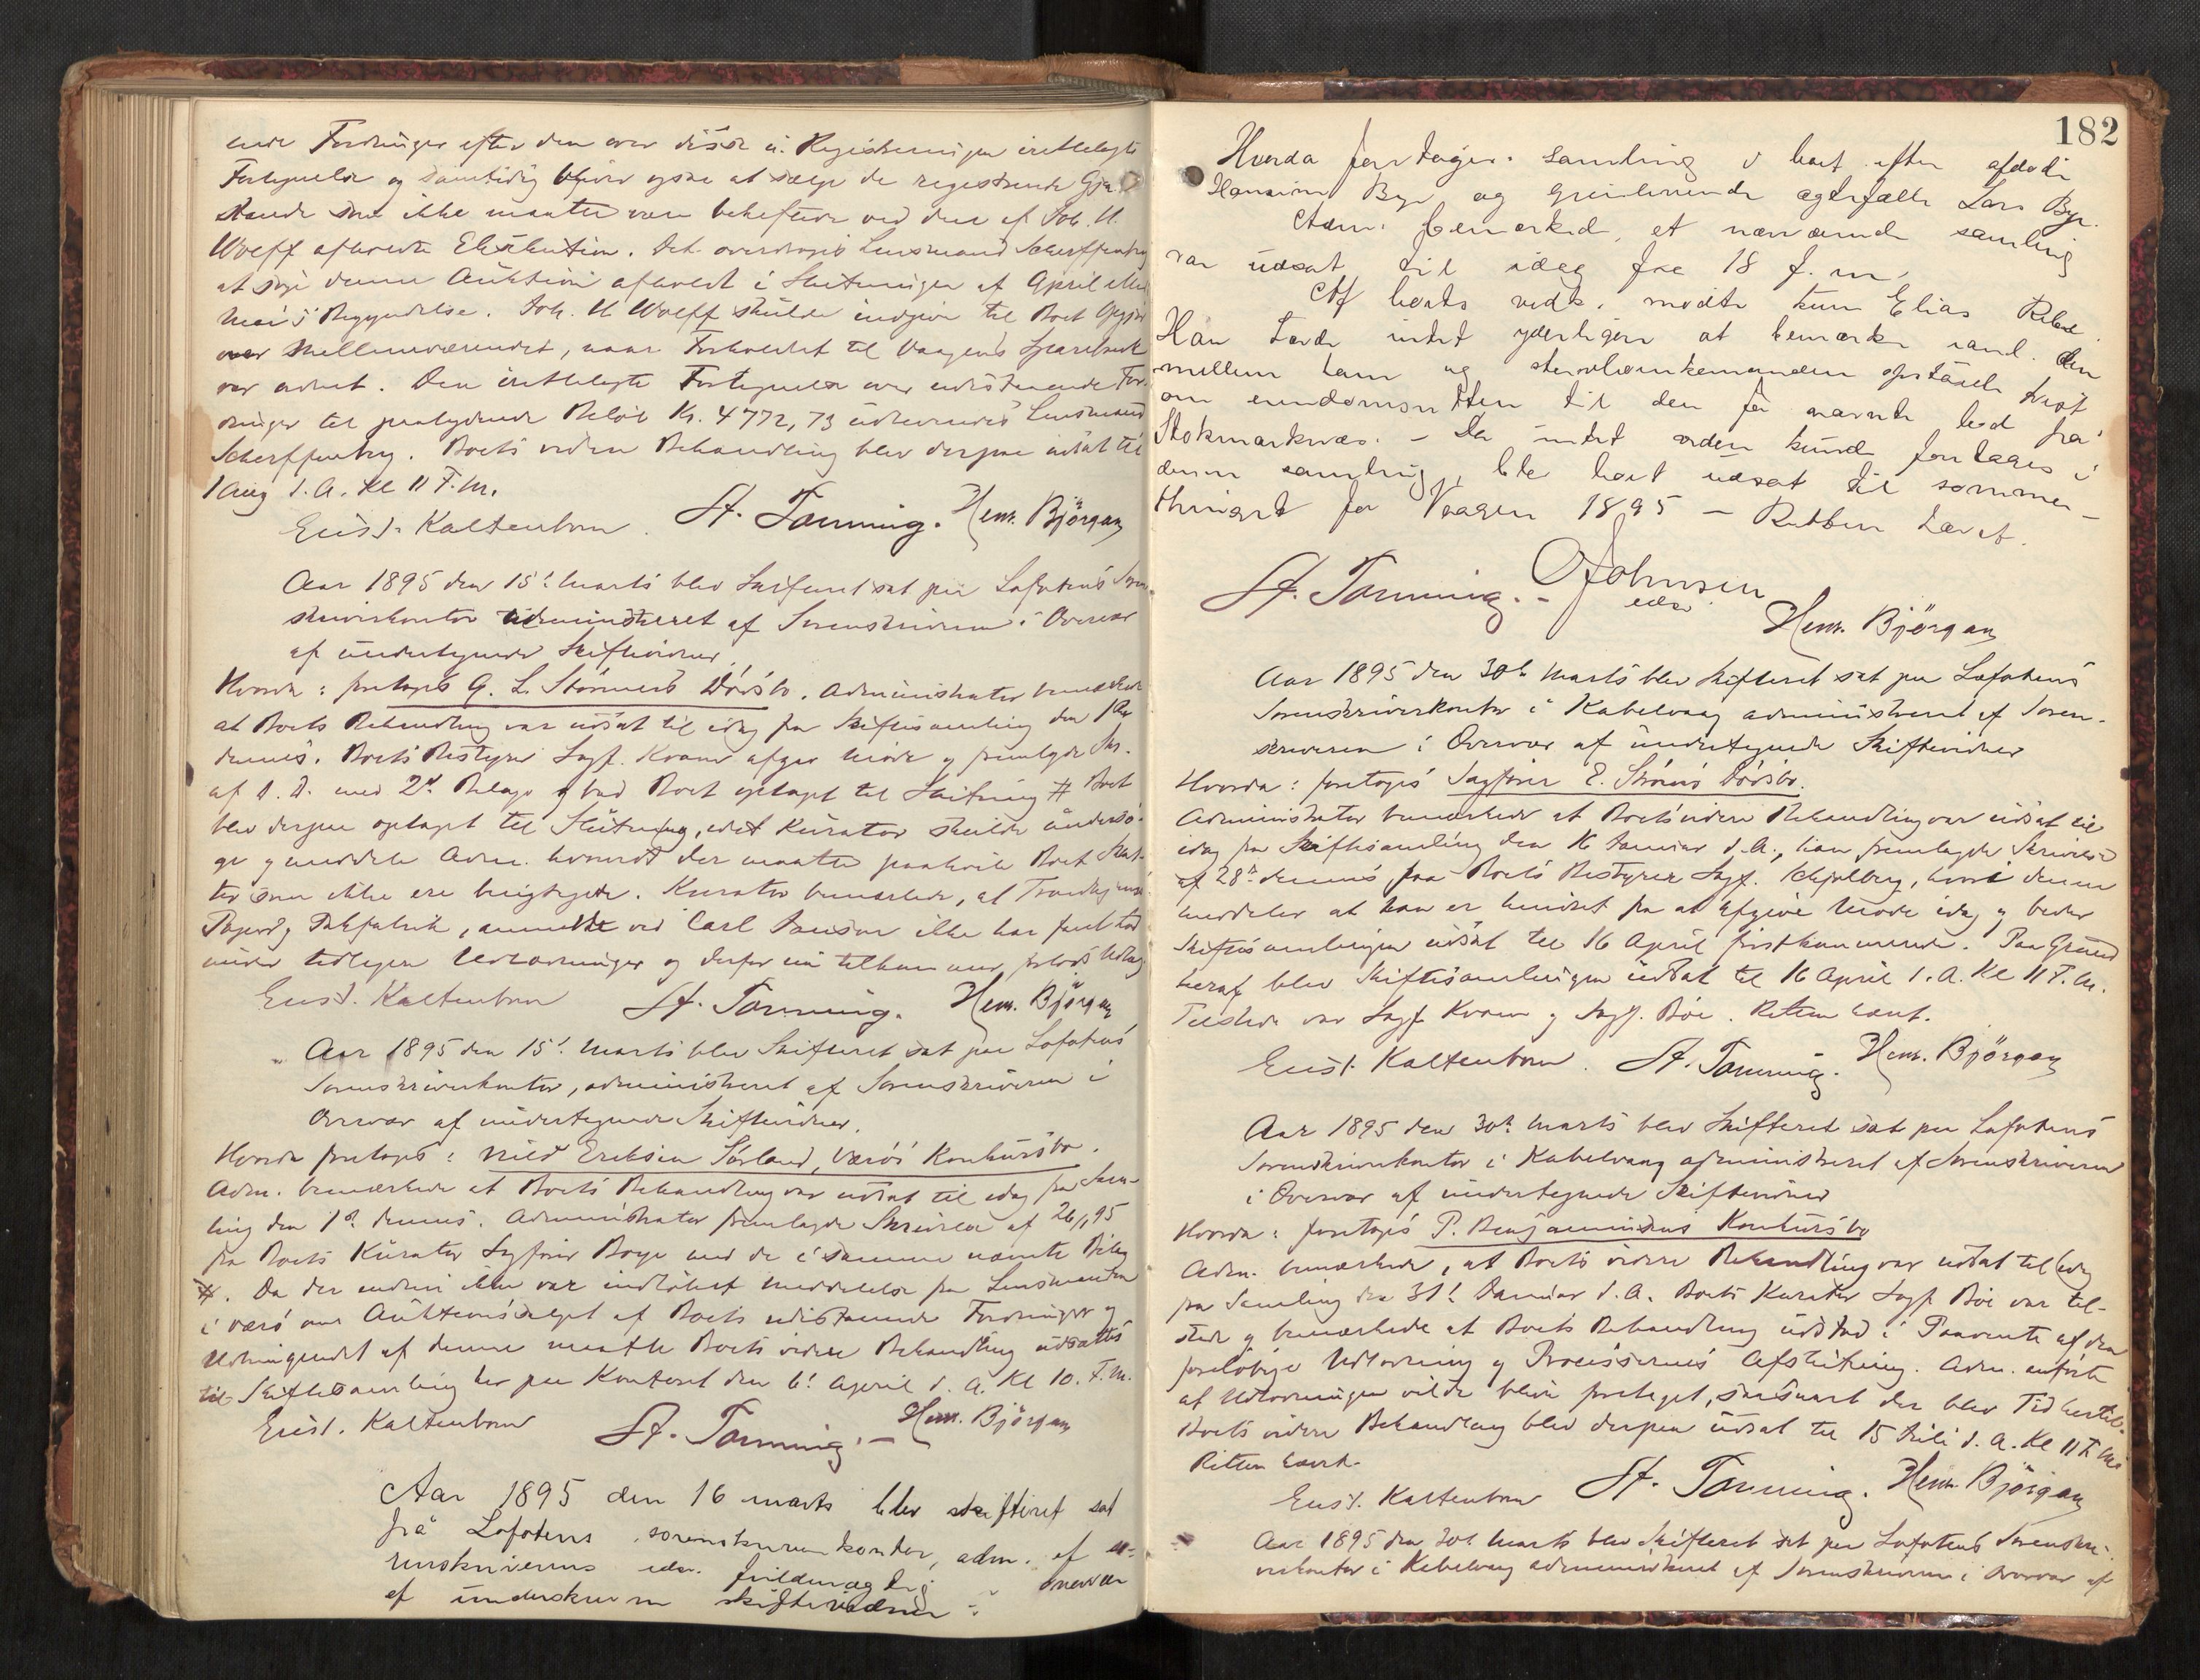 ende Fordringer efter den over disse i Registreringen irettelagte
Fortegnelse og samtidig blive ogsaa at sælge de registrerede Gjen-
stande som ikke maatte være beheftede ved den af Joh. H.
Wolff afholdte Execution. Det overdroges Lensmand Scherffenberg
at søge denne Auktion afholdt i Slutningen af April eller
Mai's Begyndelse. Joh. H Wolff skulde indgive til Boet Opgjør
over Mellemværendet, naar Forholdet til Vaagens Sparebank
var ordnet. Den irettelagte Fortegnelse over udestaaende For-
dringer til paalydende Beløb Kr. 4772,73 udleveredes Lensmand
Scherffenberg. Boets videre Behandling blev derpaa udsat til
1 Aug d. A. Kl 11 F.M.
Eust. Kaltenborn. St. Tømming. Henr. Björgan
Aar 1895 den 15de Marts blev Skifteret sat paa Lofotens Soren-
skriverkontor administreret af Sorenskriveren i Overvær
af undertegnede Skiftevidner.
Hvorda: foretoges G. L. Störmers Dödsbo. Administrator bemærkede
at Boets Behandling var udsat til idag fra Skiftesamling den
dennes. Boets Bestyrer Sagf. Kvam afgav Møde og fremlagde Skr.
af D. D. med 2de Bilage og bad Boet optaget til Slutning # Boet
blev derpaa optaget til Slutning, idet Kurator skulde undersø-
ge og meddele Adm. hvorvidt der maatte paahvile Boet Skat-
ter som ikke ere berigtigede. Kurator bemærkede, at
Papfabrik, anmeldt ved Carl Jensen ikke har faaet
under tidligere Udlodninger og derfor nu tilkommer forlods Udlæg
Eust. Kaltenborn St. Tømming. Henr. Björgan
Aar 1895 den 15de Marts blev Skifteret sat paa Lofotens
Sorenskriverkontor, administreret af Sorenskriveren i
Overvær af undertegnede Skiftevidner.
Hvorda foretoges: Nils Eriksen Sörland, Værö's Konkursbo.
Adm. bemærkede at Boets Behandling var udsat til idag fra Sam-
ling den 1ste dennes. Administrator fremlagde Skrivelse af 26/1 95
fra Boets Kurator Sagfører Boye med de i samme nævnte Bilag
#. Da der endnu ikke var indløbet Meddelelse fra Lensmanden
i Værö om Auktionssalget af Boets udestaaende Fordringer og
Udbringendet af denne maatte Boets videre Behandling udsættes
til Skiftesamling her paa Kontoret den 6te April d. A. Kl 10. F.M.
Eust. Kaltenborn St. Tømming. – Henr. Björgan
Aar 1895 den 16 marts blev skifteret sat
på Lofotens sorenskriverkontor, adm. af so-
renskriverens edsv. fuldmægtig i overvær
af underskrevne skiftevidner:
182
Hvorda foretoges: samling i boet efter afdøde
Hansine Bye og gjenlevende ægtefælle Lars Bye.
Adm. bemærked, at nærværende samling
var udsat til idag fra 18 f. m.
Af boets vedk. mødte kun Elias
Han havde intet yderligere at bemærke den
mellem ham og stervbomkemanden opståede tvist
om eiendomsretten til den før nævnte bod fra
Stokmarknæs. – Da intet videre kunde foretages i
denne samling, ble boet udsat til sommer-
thinget for Vaagen 1895 – Retten hævet.
St. Tømming. – O Johnsen
edsv. Henr. Björgan
Aar 1895 den 30te Marts blev Skifteret sat paa Lofotens
Sorenskriverkontor i Kabelvaag administreret af Soren-
skriveren i Overvær af undertegnede Skiftevidner
Hvorda: foretoges Sagfører E. Ströms Dödsbo.
Administrator bemærkede at Boets videre Behandling var udsat til
idag fra Skiftesamling den 16 Januar d. A., han fremlagde Skrivelse
af 28de dennes fra Boets Bestyrer Sagf. Schjelberg, hvori denne
meddeler at han er hindret fra at afgive Møde idag og beder
Skiftesamlingen udsat til 16 April førstkommende. Paa Grund
heraf blev Skiftesamlingen udsat til 16 April d. A. Kl 11 F.M.
Tilstede var Sagf. Kvam og Sagf. Böe. Retten hævet.
Eust. Kaltenborn. St. Tømming. Henr. Björgan
Aar 1895 den 30te Marts blev Skifteret sat paa Lofotens
Sorenskriverkontor i Kabelvaag administreret af Sorenskriveren
i Overvær af undertegnede Skiftevidner
Hvorda: foretoges P. Benjaminsens Konkursbo
Adm. bemærkede, at Boets videre Behandling var udsat til idag
fra Samling den 31te Januar d. A. Boets Kurator Sagf Böe var til-
stede og bemærkede at Boets Behandling udstod i Paavente af den
foreløbige Udlodning og Processernes Afslutning. Adm. anførte
at Udlodningen vilde blive foretaget, saasnart der blev Tid hertil.
Boets videre Behandling blev derpaa udsat til 15 Juli d. A. Kl 11 F.M.
Retten hævet.
Eust. Kaltenborn St. Tømming. Henr. Björgan
Aar 1895 den 30te Marts blev Skifteret sat paa Lofotens Sorenskri-
verkontor i Kabelvaag administreret af Sorenskriveren i Overvær af